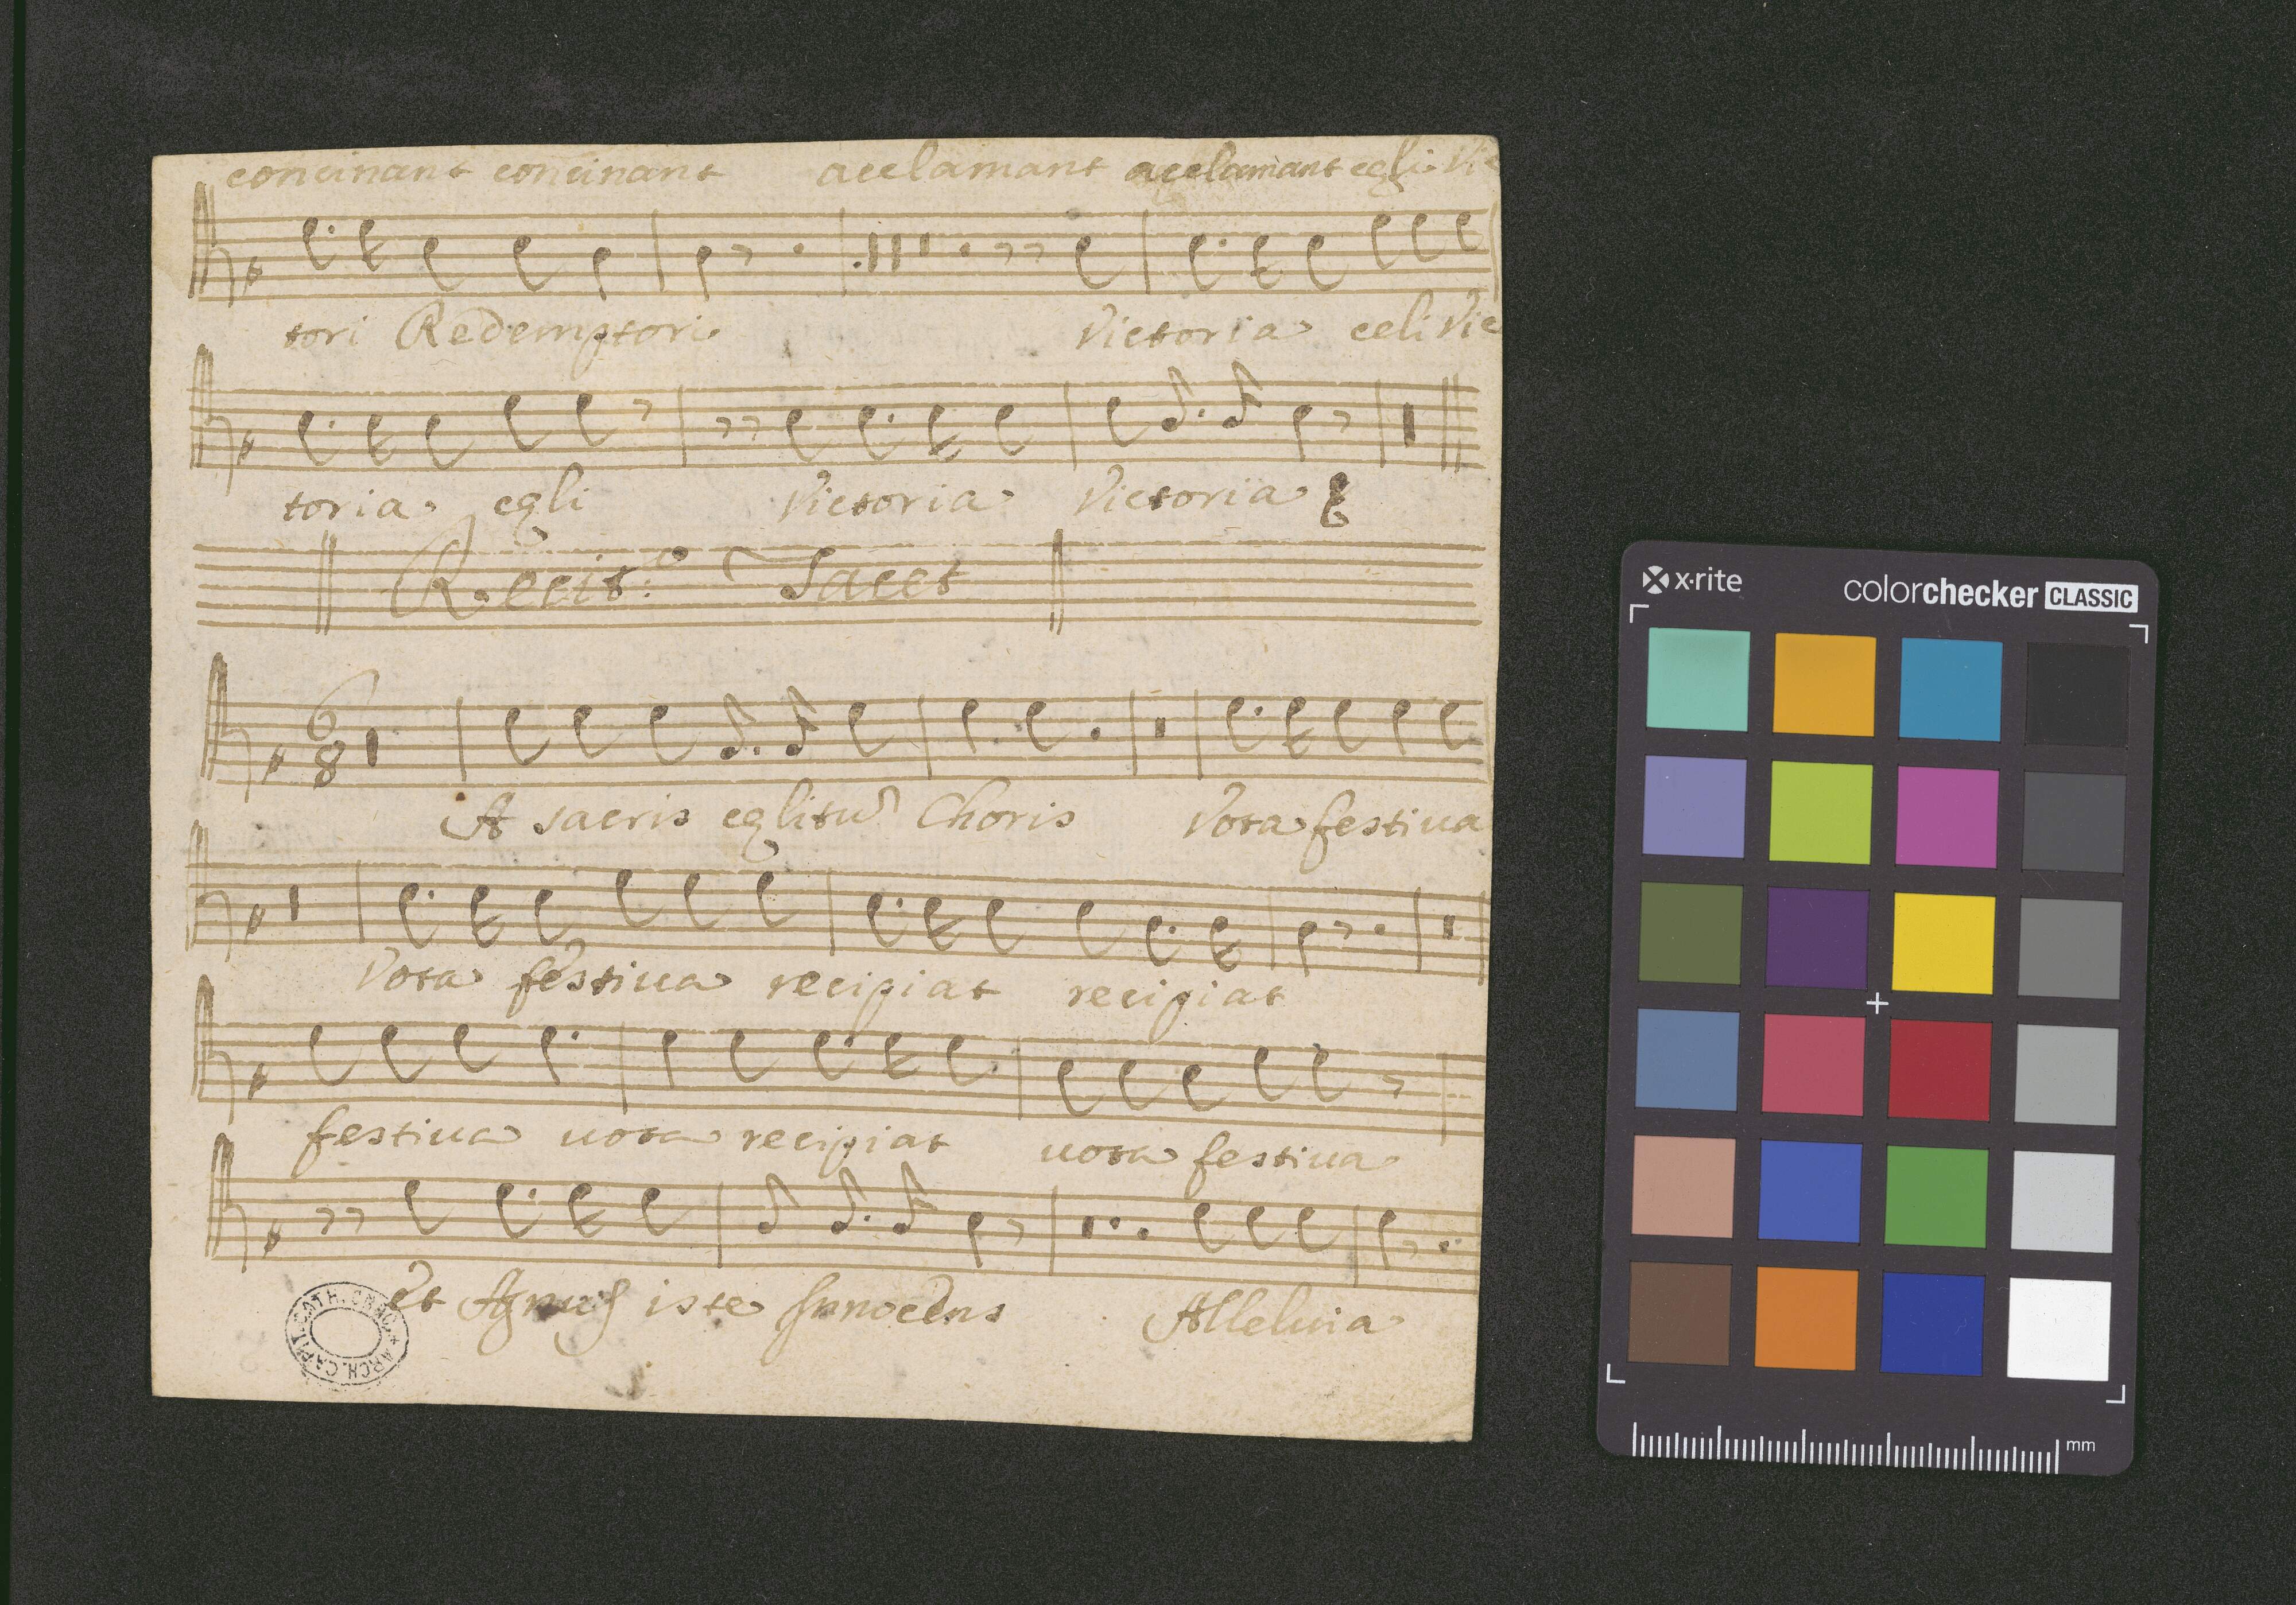 concinant concinant acclamant acclamant cęli Vic
tori Redemptori Victoria celi Vic
toria cęli Victoria Victoria
Recit: Tacet
6
8
A sacris cęlitū Choris Vota festiua
Vota festiua recipiat recipiat
festiua uota recipiat uota festiua
et Agnus iste Innocens Alleluia
ARCH. CAPIT. CATH. CRAC.
x·rite
colorchecker CLASSIC
mm